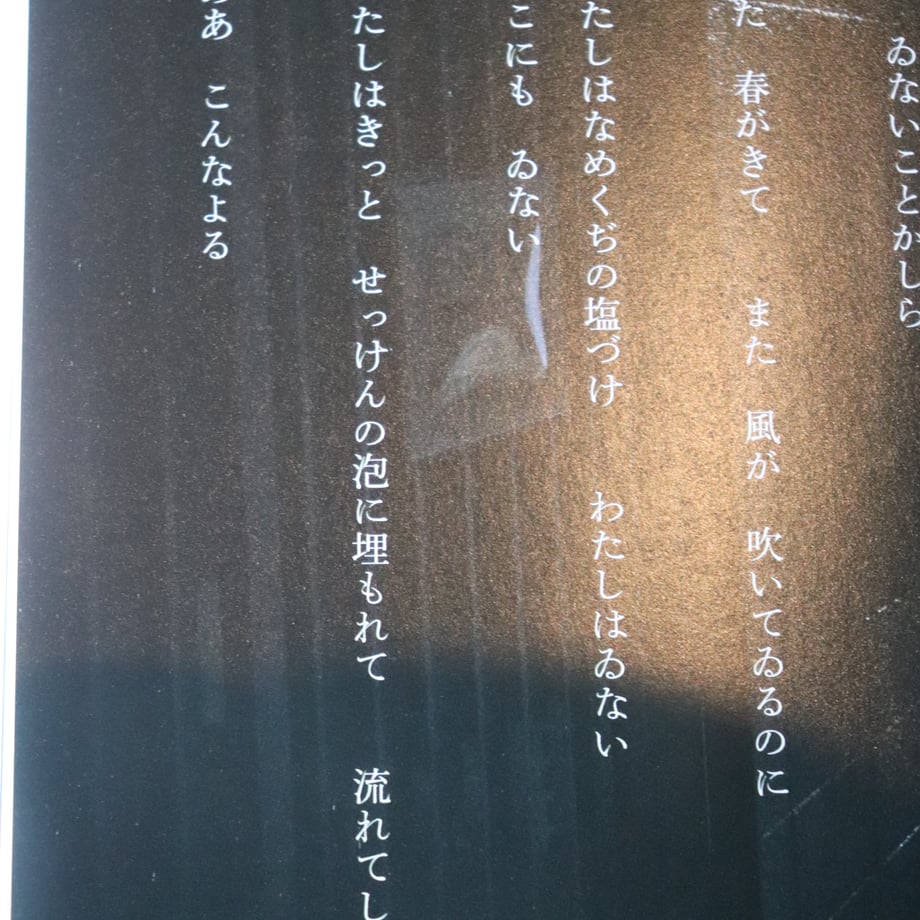 ゐないことかしら
た　春がきて　　また　風が　吹いてゐるのに
たしはなめくぢの塩づけ　　わたしはゐない
こにも　ゐない
たしはきっと　せっけんの泡に埋もれて　　流れてし
あ　こんなよる